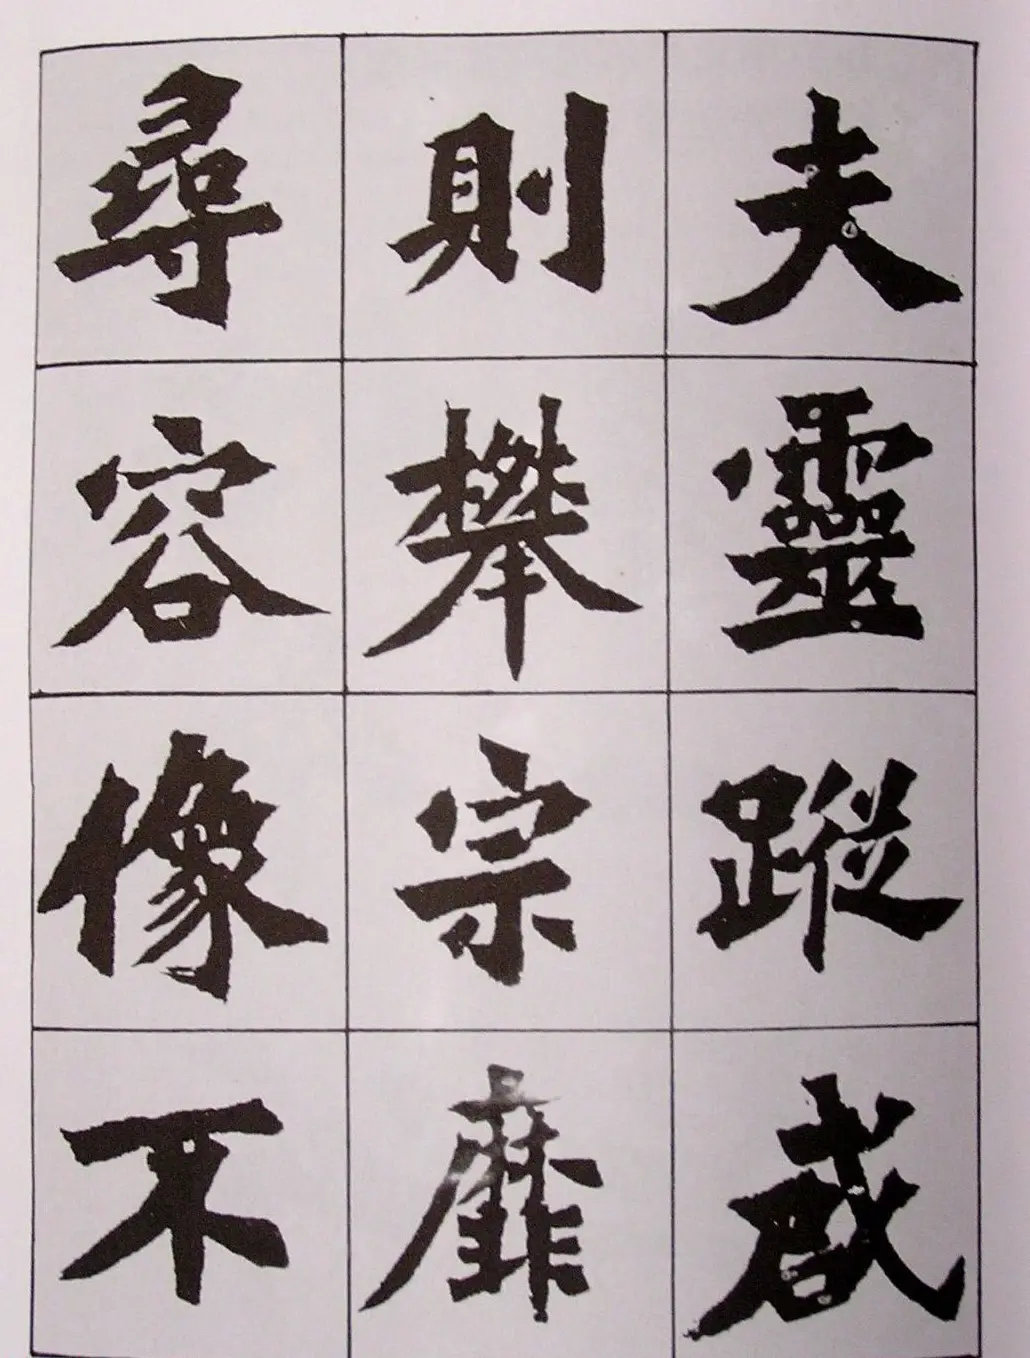 夫靈蹤啟
則攀宗靡
尋容像不